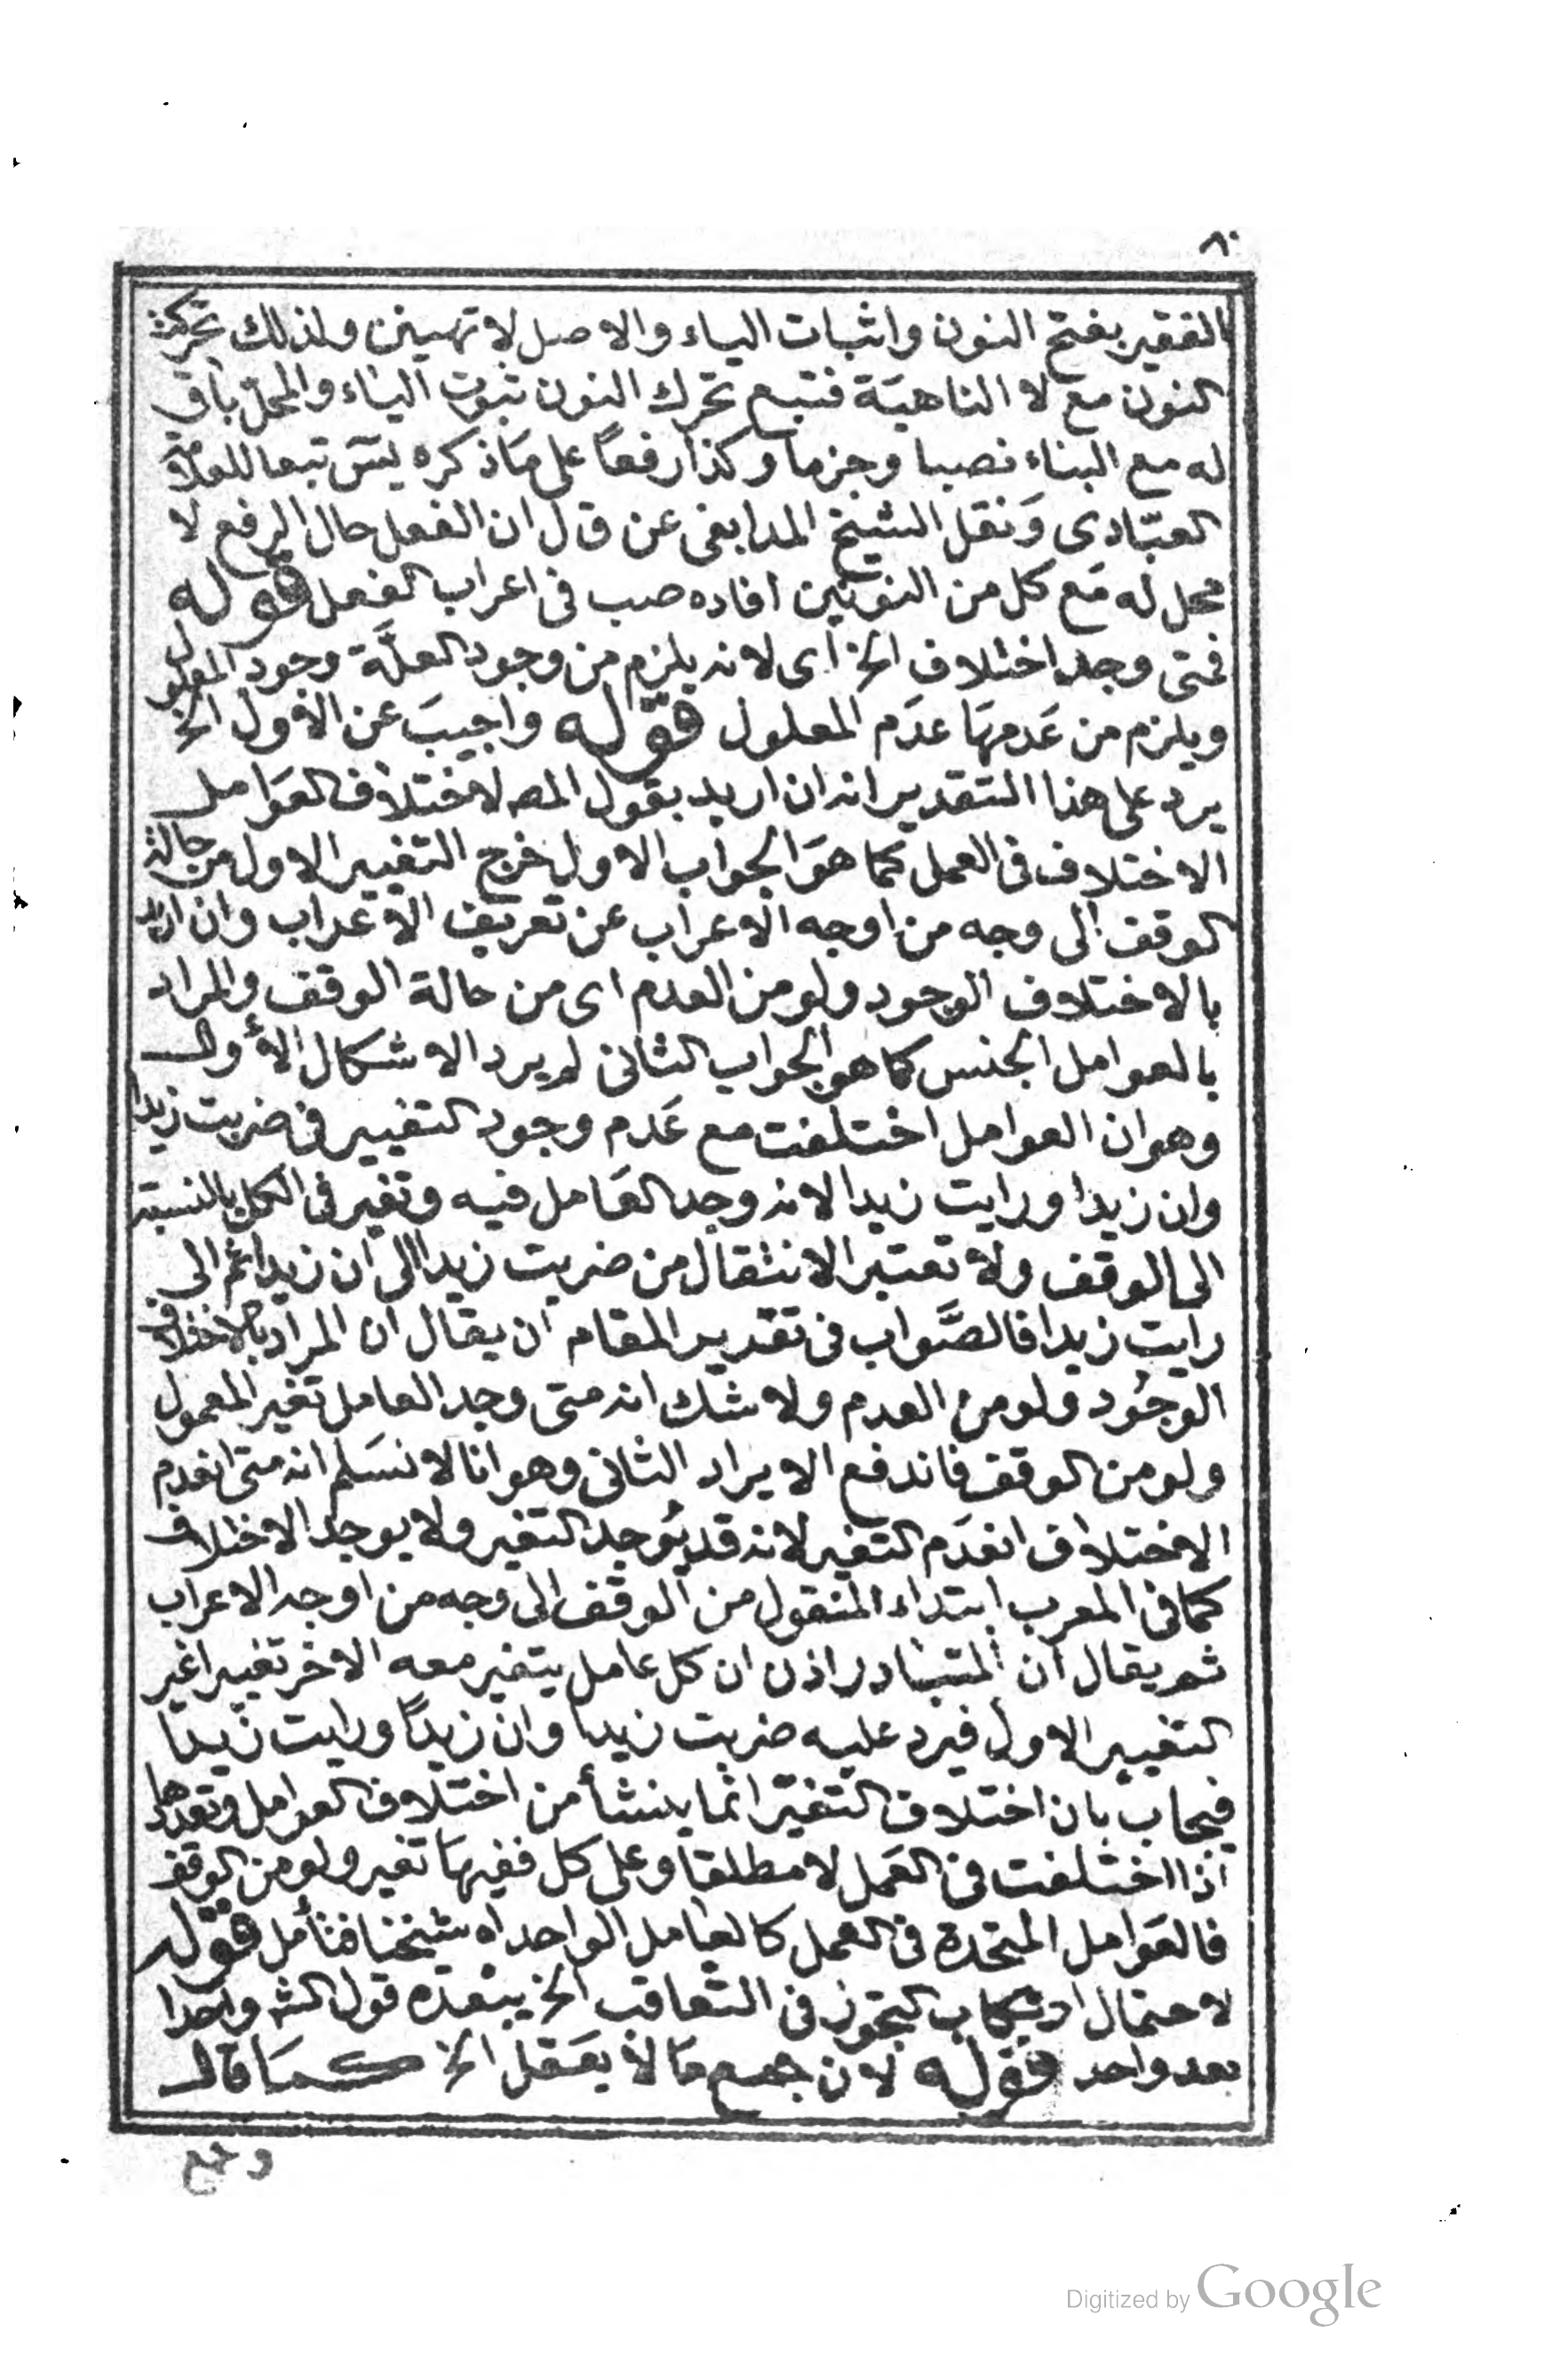 ٨٠
الفقير بفتح النون واثبات الياء والاصل لا تهينن ولذلك تحركت
النون مع لا الناهية فتبع تحرك النون ثبوت الياء والمحل باق
له مع البناء نصبا وجزما وكذا رفعا على ما ذكره يس تبعا للعلامة
العبّادى ونقل الشيخ المدابغى عن ق ل ان الفعل حال الرفع لا
محل له مع كل من النونين افاده صب فى اعراب الفعل قوله
فمتى وجد اختلاف الخ اى لانه يلزم من وجود العلّة وجود المعلول
ويلزم من عدمها عدم المعلول قوله واجيب عن الاول الخ
يرد على هذا التقدير انه ان اريد بقول المصـ لاختلاف العوامل
الاختلاف فى العمل كما هو الجواب الاول خرج التغيير الاول من حالة
الوقف الى وجه من اوجه الاعراب عن تعريف الاعراب وان اريد
بالاختلاف الوجود ولو من العدم اى من حالة الوقف والمراد
بالعوامل الجنس كما هو الجواب الثانى لم يرد الاشكال الأول
وهو ان العوامل اختلفت مع عدم وجود التغيير فى ضربت زيدا
وان زيدا ورايت زيدا لانه وجد العامل فيه وتغير فى الكل بالنسبة
الى الوقف ولا تعتبر الانتقال من ضربت زيدا الى ان زيدا ثم الى
رايت زيدا فالصّواب فى تقدير المقام ان يقال ان المراد بالاختلاف
الوجود ولو من العدم ولا شك انه متى وجد العامل تغير المعمول
ولو من الوقف فاندفع الايراد الثانى وهو انا لا نسلم انه متى انعدم
الاختلاف انعدم التغير لانه قد يوجد التغير ولا يوجد الاختلاف
كما فى المعرب ابتداء المنقول من الوقف الى وجه من اوجه الاعراب
ثم يقال ان المتبادر اذن ان كل عامل يتغير معه الاخر تغييرا غير
التغيير الاول فيرد عليه ضربت زيدا وان زيدًا ورايت زيدا
فيجاب بان اختلاف التغيّر انما ينشأ من اختلاف العوامل وتعددها
اذا اختلفت فى العمل لا مطلقا وعلى كل ففيها تغير ولو من الوقف
فالعوامل المتحدة فى العمل كالعامل الواحد اه شيخنا فتأمل قوله
لاحتمال ارتكاب التجوز فى التعاقب الخ يبعده قول الشـ واحدا
بعد واحد قوله لان جمع ما لا يعقل الخ كما قال
وجمع
Digitized by Google